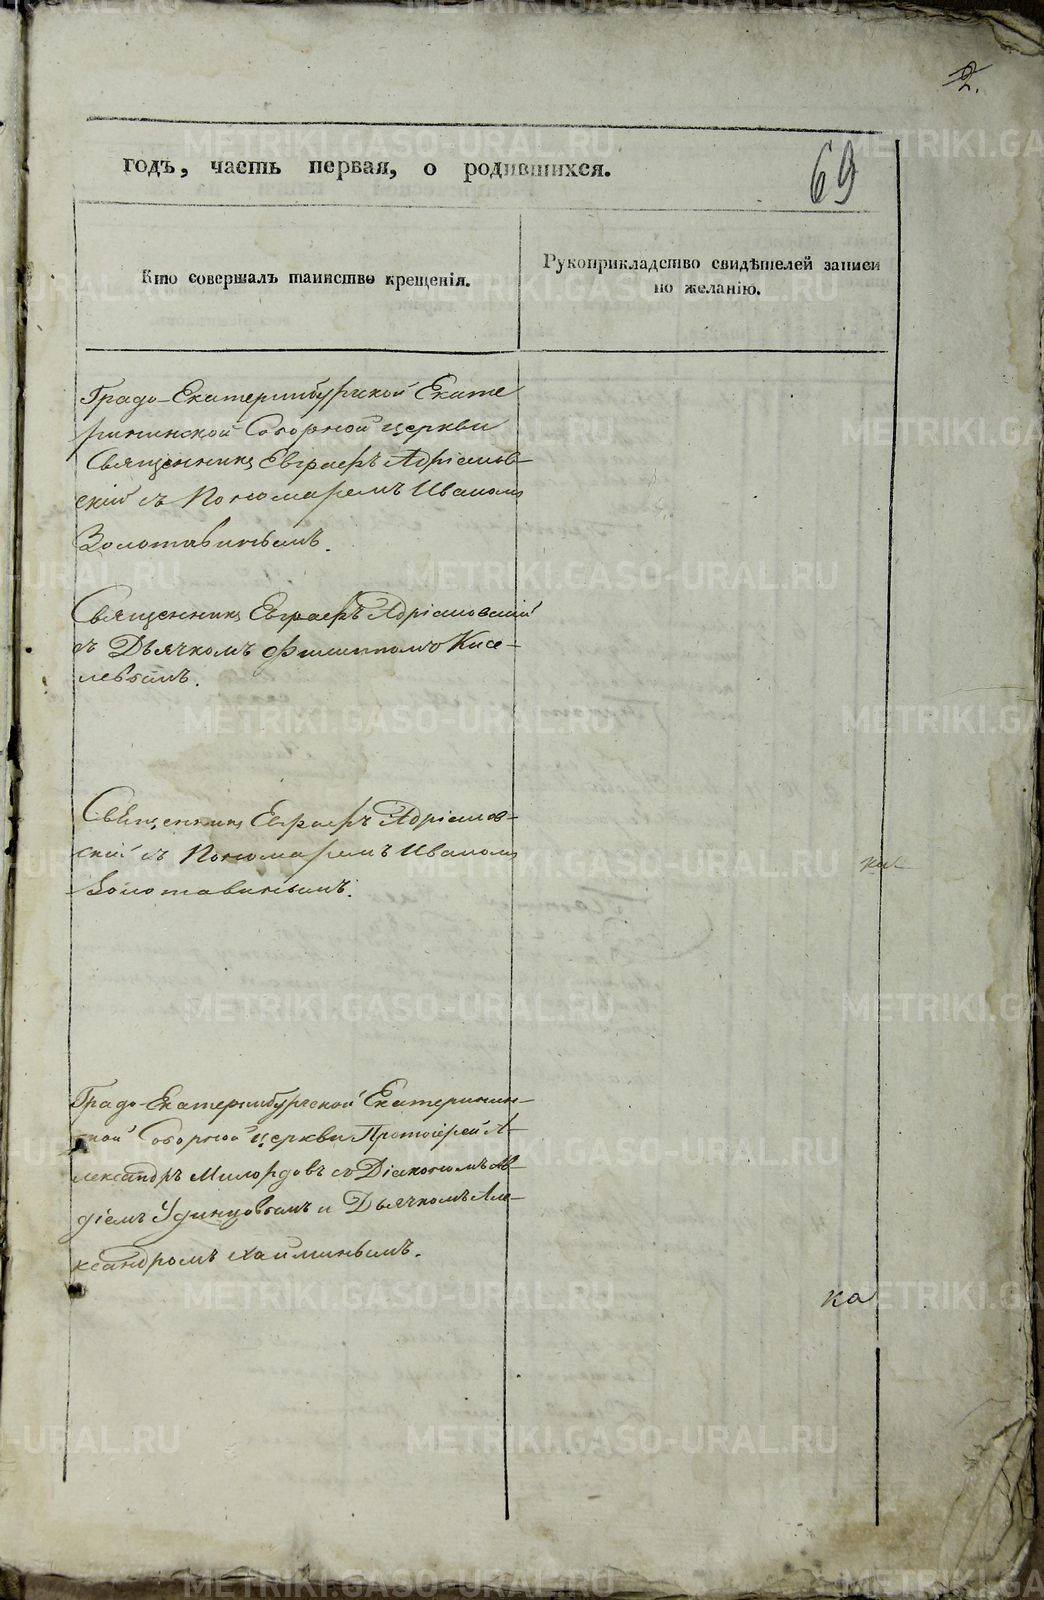 2.
годъ, часть первая, о родившихся.
69
Кто совершалъ таинство крещенія.
Рукоприкладство свидѣтелей записи
по желанію.
Градо-Екатеринбургской Екате
рининской Соборной церкви
Священникъ Евграфъ Адріанов-
скій съ Пономаремъ Иваномъ
Золотавинымъ.
Священникъ Евграфъ Адріановскій
съ Дьячкомъ Филиппомъ Кисе-
левымъ.
Священникъ Евграфъ Адріанов-
скій съ Пономаремъ Иваномъ
Золотавинымъ.
Градо-Екатеринбургской Екатеринин-
ской Соборной церкви Протоіерей А-
лександръ Милордовъ съ Діакономъ Ав-
діемъ Удинцовымъ и Дьячкомъ Але-
ксандромъ Хайминымъ.
ка
METRIKI.GASO-URAL.RU